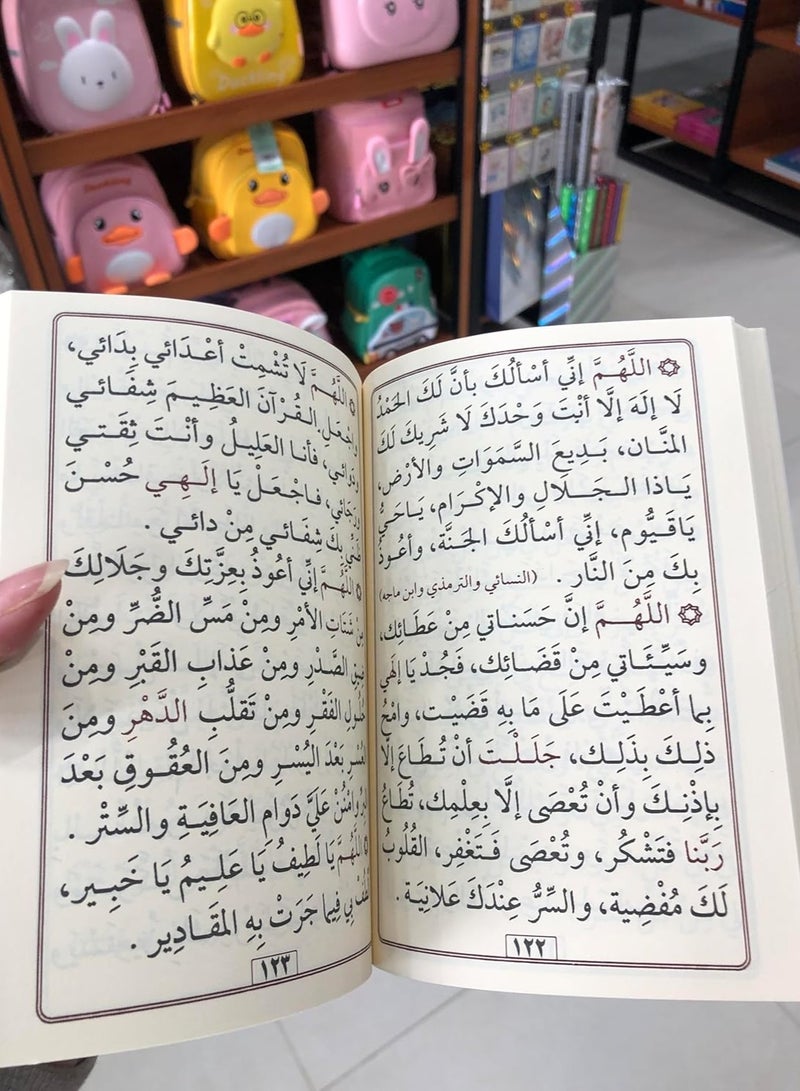 ۞ اللَّهُمَّ إِنِّي أَسْأَلُكَ بأنَّ لَكَ الحَمْدُ
لَا إِلَهَ إلَّا أنْتَ وَحْدَكَ لَا شَرِيكَ لَكَ
المنَّان، بَدِيعَ السَّمَوَاتِ والأرْض،
يَاذا الـجَـلَالِ والإكْرَام، يَـاحَيُّ
يَاقَـيُّوم، إنِّي أسْأَلُكَ الجَنَّة، وأعُوذُ
بِكَ مِنَ النَّار . (النسائي والترمذي وابن ماجه)
۞ اللَّهُــمَّ إنَّ حَسَنـاتي مِنْ عَطَائِك،
وسَيِّـئَـاتي مِنْ قَضَـائِك، فَجُدْ يَا إلَهي
بِما أعْطَـيْتَ عَلَى مَا بِهِ قَضَيْت، وامْحُ
ذلِـكَ بِذَلِـك، جَـلَـلْـتَ أنْ تُطَـاعَ إلَّا
بِإذْنِـكَ وأنْ تُعْصَى إلَّا بِعِلْمِك، تُطَاعُ
رَبَّنا فتَشْكُر، وتُعْصَى فَـتَغْفِر، القُلُوبُ
لَكَ مُفْضِية، والسِّرُّ عِنْدَكَ عَلَانِيَة .
١٢٢
۞ اللَّهُمَّ لَا تُشْمِتْ أعْـدَائي بِدَائي،
واجْعَلِ القُرْآنَ العَظِيمَ شِفَـائـي
ودوَائي، فأنا العَلِيلُ وأنْـتَ ثِقَـتـي
ورَجَائي، فـاجْعَـلْ يَا إلَـهِـي حُسْـنَ
ظَنِّي بِكَ شِفَـائـي مِنْ دائـي .
۞ اللَّهُمَّ إنِّي أعُوذُ بِعِزَّتِكَ وجَلَالِكَ
مِنْ شَتَاتِ الأمْرِ ومِنْ مَسِّ الضُّرِّ ومِنْ
ضِيقِ الصَّدْرِ ومِنْ عَذابِ القَبْرِ ومِنْ
حُلُولِ الفَقْرِ ومِنْ تَقَلُّبِ الدَّهْرِ ومِنَ
العُسْرِ بَعْدَ اليُسْرِ ومِنَ العُقُـوقِ بَعْدَ
وامْنُنْ عَلَيَّ دَوامِ العَافِيَـةِ والسِّتْر .
۞ اللَّهُمَّ يَا لَطِيفُ يَا عَلِـيمُ يَا خَـبِـير،
الْطُفْ بي فِيما جَرَتْ بِهِ المقَـادِير .
١٢٣
Duckling